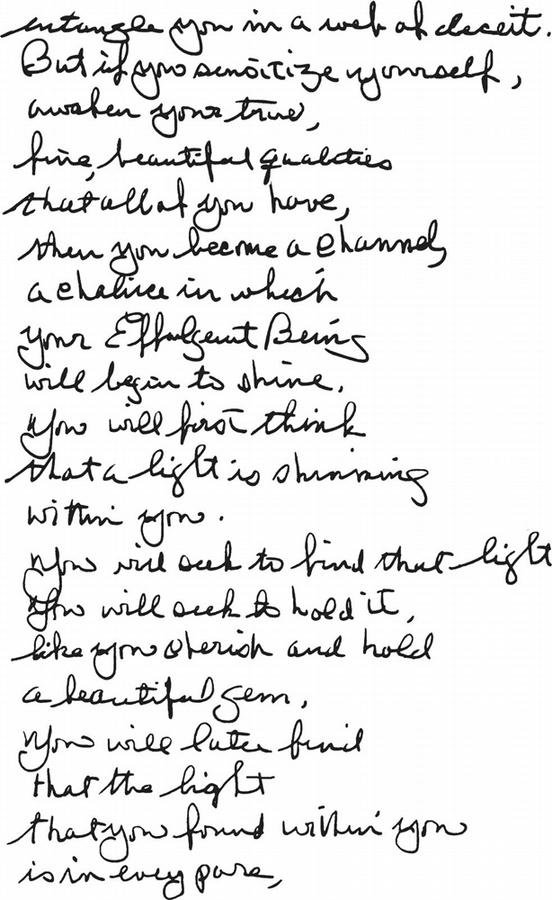 entangle you in a web of deceit.
But if you sensitize yourself,
awaken your true,
fine, beautiful qualities
that all of you have,
then you become a channel,
a chalice in which
your Effulgent Being
will begin to shine.
You will first think
that a light is shinning
within you.
You will seek to find that light
You will seek to hold it,
like you cherish and hold
a beautiful gem,
You will later find
that the light
that you found within you
is in every pore,